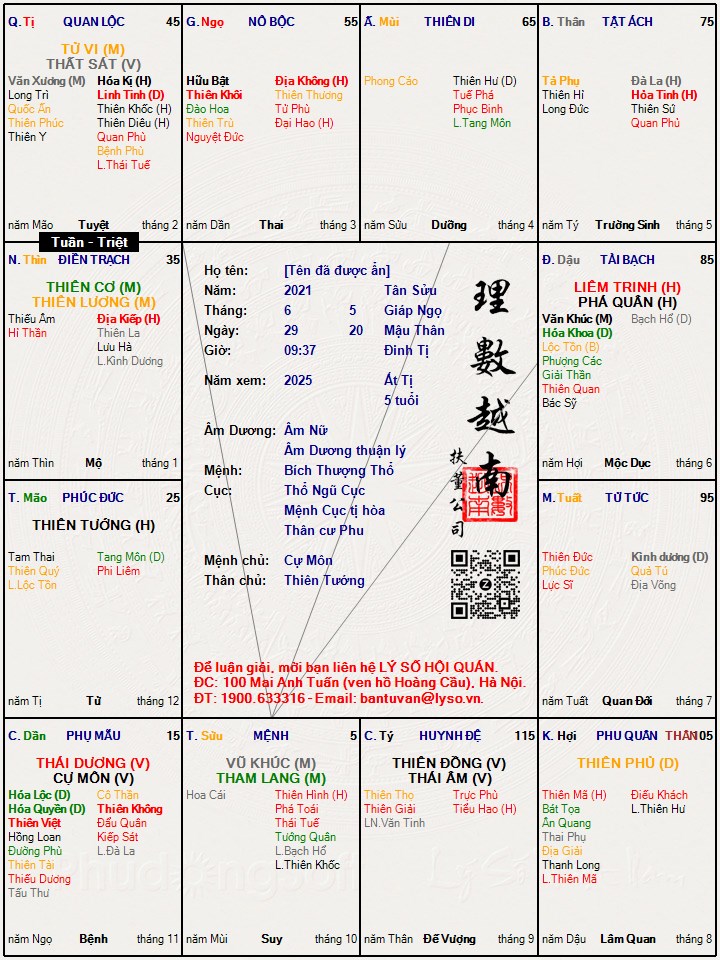 Q. Tị QUAN LỘC 45
TỬ VI (M)
THẤT SÁT (V)
Văn Xương (M) Hóa Kị (H)
Long Trì Linh Tinh (D)
Quốc Ấn Thiên Khốc (H)
Thiên Phúc Thiên Diêu (H)
Thiên Y Quan Phù
Bệnh Phù
L.Thái Tuế
năm Mão Tuyệt tháng 2
G. Ngọ NÔ BỘC 55
Hữu Bật Địa Không (H)
Thiên Khôi Thiên Thương
Đào Hoa Tử Phù
Thiên Trù Đại Hao (H)
Nguyệt Đức
năm Dần Thai tháng 3
Ấ. Mùi THIÊN DI 65
Phong Cáo Thiên Hư (D)
Tuế Phá
Phục Binh
L.Tang Môn
năm Sửu Dưỡng tháng 4
B. Thân TẬT ÁCH 75
Tả Phụ Đà La (H)
Thiên Hỉ Hỏa Tinh (H)
Long Đức Thiên Sứ
Quan Phủ
năm Tý Trường Sinh tháng 5
Tuần - Triệt
N. Thìn ĐIỀN TRẠCH 35
THIÊN CƠ (M)
THIÊN LƯƠNG (M)
Thiếu Âm Địa Kiếp (H)
Hỉ Thần Thiên La
Lưu Hà
L.Kình Dương
năm Thìn Mộ tháng 1
Họ tên: [Tên đã được ẩn]
Năm: 2021 Tân Sửu
Tháng: 6 5 Giáp Ngọ
Ngày: 29 20 Mậu Thân
Giờ: 09:37 Đinh Tị
Năm xem: 2025 Ất Tị
5 tuổi
Âm Dương: Âm Nữ
Âm Dương thuận lý
Mệnh: Bích Thượng Thổ
Cục: Thổ Ngũ Cục
Mệnh Cục tị hòa
Thân cư Phu
Mệnh chủ: Cự Môn
Thân chủ: Thiên Tướng
理
數
越
南
扶
董
公
司
Để luận giải, mời bạn liên hệ LÝ SỐ HỘI QUÁN.
ĐC: 100 Mai Anh Tuấn (ven hồ Hoàng Cầu), Hà Nội.
ĐT: 1900.633316 - Email: bantuvan@lyso.vn.
Đ. Dậu TÀI BẠCH 85
LIÊM TRINH (H)
PHÁ QUÂN (H)
Văn Khúc (M) Bạch Hổ (D)
Hóa Khoa (D)
Lộc Tồn (B)
Phượng Các
Giải Thần
Thiên Quan
Bác Sỹ
năm Hợi Mộc Dục tháng 6
T. Mão PHÚC ĐỨC 25
THIÊN TƯỚNG (H)
Tam Thai Tang Môn (D)
Thiên Quý Phi Liêm
L.Lộc Tồn
năm Tị Tử tháng 12
M. Tuất TỬ TỨC 95
Thiên Đức Kình dương (D)
Phúc Đức Quả Tú
Lực Sĩ Địa Võng
năm Tuất Quan Đới tháng 7
C. Dần PHỤ MẪU 15
THÁI DƯƠNG (V)
CỰ MÔN (V)
Hóa Lộc (D) Cô Thần
Hóa Quyền (D) Thiên Không
Thiên Việt Đẩu Quân
Hồng Loan Kiếp Sát
Đường Phù L.Đà La
Thiên Tài
Thiếu Dương
Tấu Thư
năm Ngọ Bệnh tháng 11
T. Sửu MỆNH 5
VŨ KHÚC (M)
THAM LANG (M)
Hoa Cái Thiên Hình (H)
Phá Toái
Thái Tuế
Tướng Quân
L.Bạch Hổ
L.Thiên Khốc
năm Mùi Suy tháng 10
C. Tý HUYNH ĐỆ 115
THIÊN ĐỒNG (V)
THÁI ÂM (V)
Thiên Thọ Trực Phù
Thiên Giải Tiểu Hao (H)
LN.Văn Tinh
năm Thân Đế Vượng tháng 9
K. Hợi PHU QUÂN THÂN 105
THIÊN PHỦ (D)
Thiên Mã (H) Điếu Khách
Bát Tọa L.Thiên Hư
Ân Quang
Thai Phụ
Địa Giải
Thanh Long
L.Thiên Mã
năm Dậu Lâm Quan tháng 8